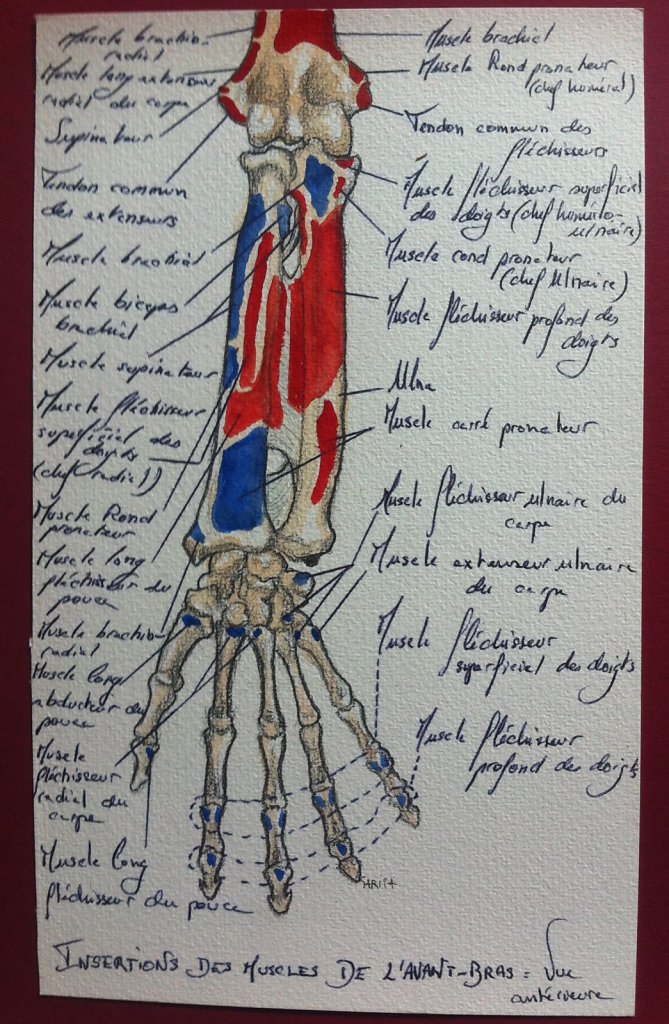 Muscle brachio-
radial
Muscle long extenseur
radial du carpe
Supinateur
Tendon commun
des extenseurs
Muscle brachial
Muscle biceps
brachial
Muscle supinateur
Muscle fléchisseur
superficiel des
doigts
(chef radial)
Muscle Rond
pronateur
Muscle long
fléchisseur du
pouce
Muscle brachio-
radial
Muscle long
abducteur du
pouce
Muscle
fléchisseur
radial du
carpe
Muscle long
fléchisseur du pouce
Muscle brachial
Muscle Rond pronateur
(chef huméral)
Tendon commun des
fléchisseurs
Muscle fléchisseur superficiel
des doigts (chef huméro-
ulnaire)
Muscle rond pronateur
(chef ulnaire)
Muscle fléchisseur profond des
doigts
Ulna
Muscle carré pronateur
Muscle fléchisseur ulnaire du
carpe
Muscle extenseur ulnaire
du carpe
Muscle fléchisseur
superficiel des doigts
Muscle fléchisseur
profond des doigts
INSERTIONS DES MUSCLES DE L'AVANT-BRAS = Vue
antérieure